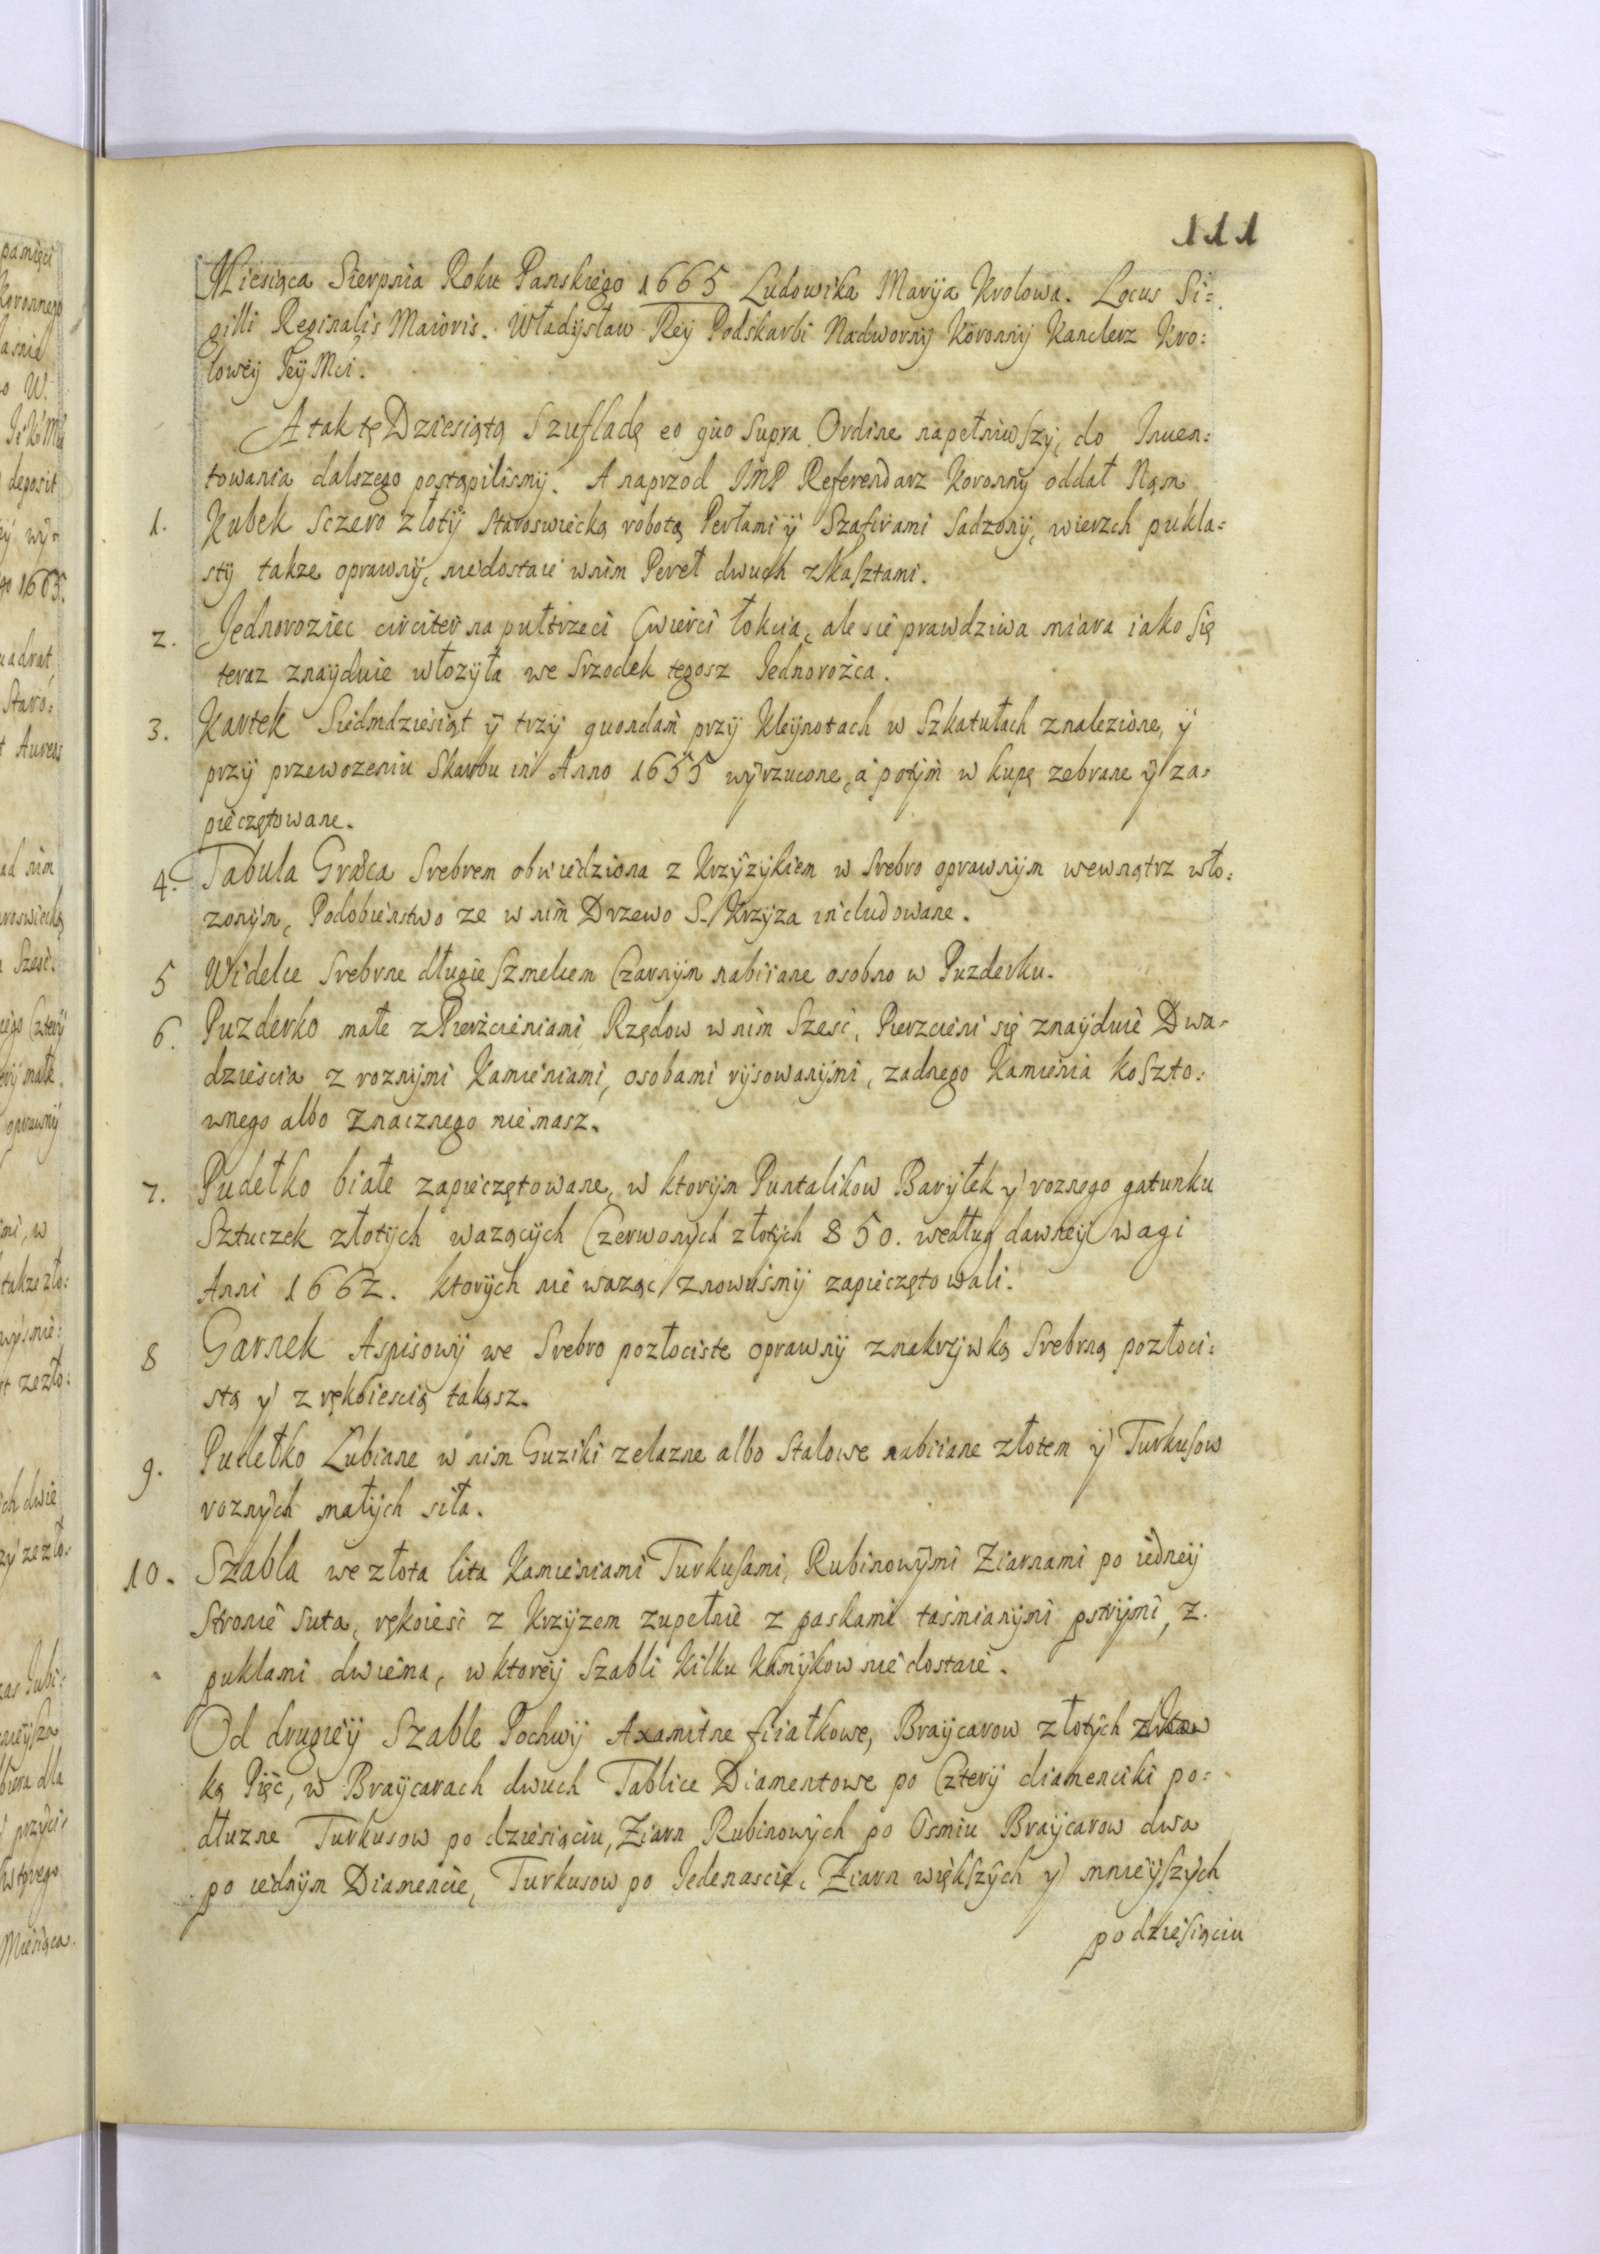 111
Miesiąca Sierpnia Roku Panskiego 1665 Ludowika Maryja Krolowa. Locus Si=
gilli Reginalis Maioris. Władysław Rey Podskarbi Nadworny Koronny Kanclerz Kro:
lowey Jey Mci.
A tak tę Dziesiątą Szufladę eo quo supra Ordine napełniwszy, do Inuen:
towania dalszego postąpilismy. A naprzod JMP Referendarz Koronny oddał Nam
1. Kubek sczero złoty staroswiecką robotą Perłami y Szafirami sadzony, wierzch pukla=
sty takze oprawny, niedostaie wnim Pereł dwuch zkasztami.
2. Jednoroziec circiter na pułtrzeci Cwierci łokcia, ale sie prawdziwa miara iako się
teraz znayduie włozyła we srzodek tegosz Jednorożca.
3. Kartek Siedmdziesiąt y trzy quondam przy Kleynotach w Szkatułach znalezione, y
przy przewozeniu Skarbu in Anno 1655 wyrzucone, a potym w kupę zebrane y za-
pieczętowane.
4. Tabula Græca Srebrem obwiedziona z Krzyzykiem w srebro oprawnym wewnątrz wło:
zonym, Podobienstwo ze w nim Drzewo S. Krzyza includowane.
5 Widelce Srebrne długie Szmelcem Czarnym nabiiane osobno w Puzderku.
6. Puzderko małe z Pierżcieniami, Rzędow w nim Szesc, Pierzcieni się znayduie Dwa-
dziescia z roznymi Kamieniami, osobami rysowanymi, zadnego Kamienia koszto:
wnego albo znacznego nie masz.
7. Pudełko białe zapieczętowane, w ktorym Puntalikow Baryłek y roznego gatunku
Sztuczek złotych wazących Czerwonych złotych 850. według dawney wagi
Anni 1662. ktorych nie waząc znowuśmy zapieczętowali.
8 Garnek Aspisowy we Srebro pozłociste oprawny znakrzywką Srebrną pozłoci:
stą y z rękoiescią takąsz.
9. Pudełko Łubiane w nim Guziki zelazne albo Stalowe nabiiane złotem y Turkusow
roznych małych siła.
10. Szabla we złota lita Kamieniami Turkusami, Rubinowymi Ziarnami po iedney
stronie suta, rękoiesc z Krzyzem zupełnie z paskami taśmianymi pstrymi, z
puklami dwiema, w ktorey Szabli kilku Kamykow nie dostaie.
Od drugiey Szable Pochwy Axamitne fiałkowe, Braycarow złotych
ką Pięć, w Braycarach dwuch Tablice Diamentowe po Cztery diamenciki po=
dłuzne Turkusow po dziesiąciu, Ziarn Rubinowych po Osmiu Braycarow dwa
po iednym Diamencie, Turkusow po Jedenascie, Ziarn większych y mnieyszych
podziesiąciu